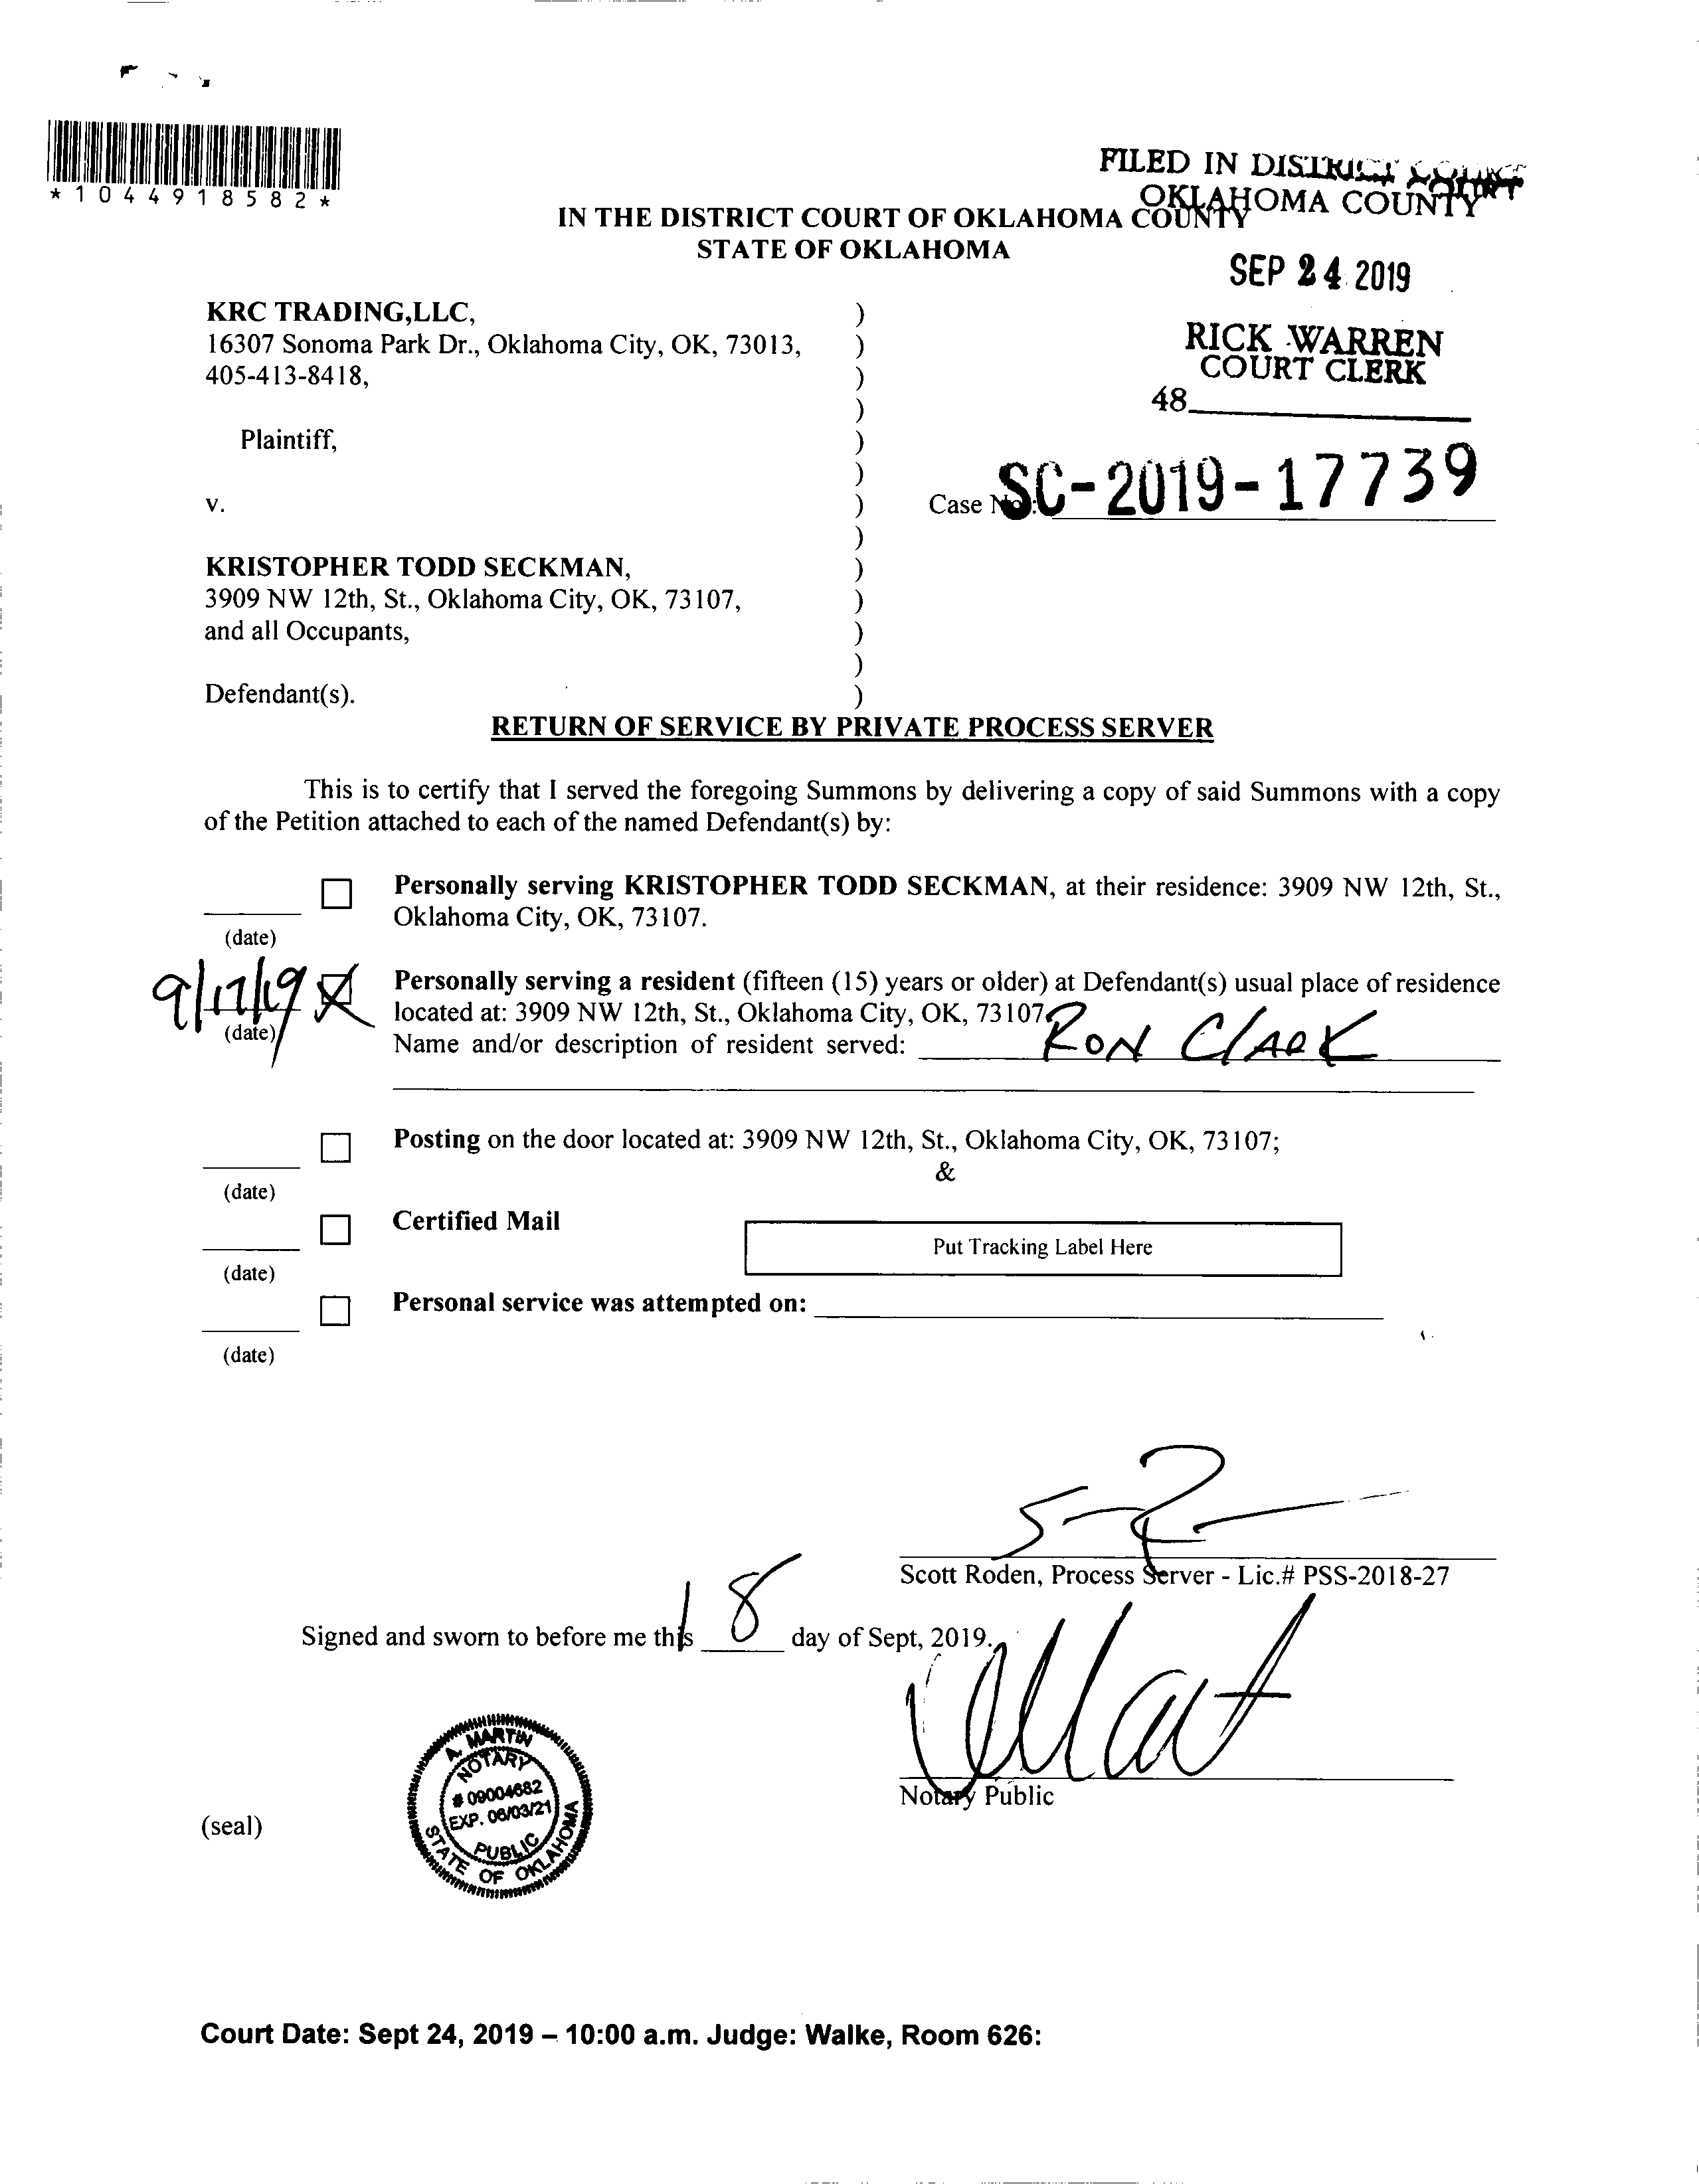 *1044918582*
FILED IN DISTRICT COURT
OKLAHOMA COUNTY
IN THE DISTRICT COURT OF OKLAHOMA COUNTY
STATE OF OKLAHOMA
SEP 24 2019
RICK WARREN
COURT CLERK
48
KRC TRADING,LLC, )
16307 Sonoma Park Dr., Oklahoma City, OK, 73013, )
405-413-8418, )
)
Plaintiff, )
)
v. ) Case No.: SC-2019-17739
)
KRISTOPHER TODD SECKMAN, )
3909 NW 12th, St., Oklahoma City, OK, 73107, )
and all Occupants, )
)
Defendant(s). )
RETURN OF SERVICE BY PRIVATE PROCESS SERVER
This is to certify that I served the foregoing Summons by delivering a copy of said Summons with a copy
of the Petition attached to each of the named Defendant(s) by:
Personally serving KRISTOPHER TODD SECKMAN, at their residence: 3909 NW 12th, St.,
Oklahoma City, OK, 73107.
(date)
9/17/19
Personally serving a resident (fifteen (15) years or older) at Defendant(s) usual place of residence
located at: 3909 NW 12th, St., Oklahoma City, OK, 73107.
(date)
Name and/or description of resident served: RON ClARK
Posting on the door located at: 3909 NW 12th, St., Oklahoma City, OK, 73107;
&
(date)
Certified Mail
Put Tracking Label Here
(date)
Personal service was attempted on:
(date)
Scott Roden, Process Server - Lic.# PSS-2018-27
Signed and sworn to before me this 18 day of Sept, 2019.
Notary Public
(seal)
A. MARTIN
NOTARY
# 09004682
EXP. 06/03/21
PUBLIC
STATE OF OKLAHOMA
Court Date: Sept 24, 2019 – 10:00 a.m. Judge: Walke, Room 626: